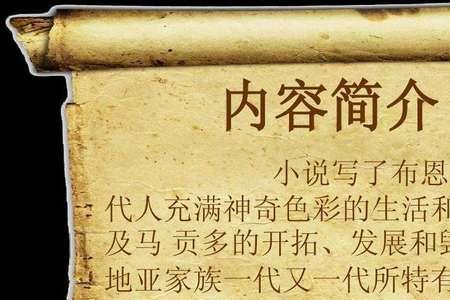 内容简介
小说写了布恩
代人充满神奇色彩的生活和
及马 贡多的开拓、发展和毁
地亚家族一代又一代所特有